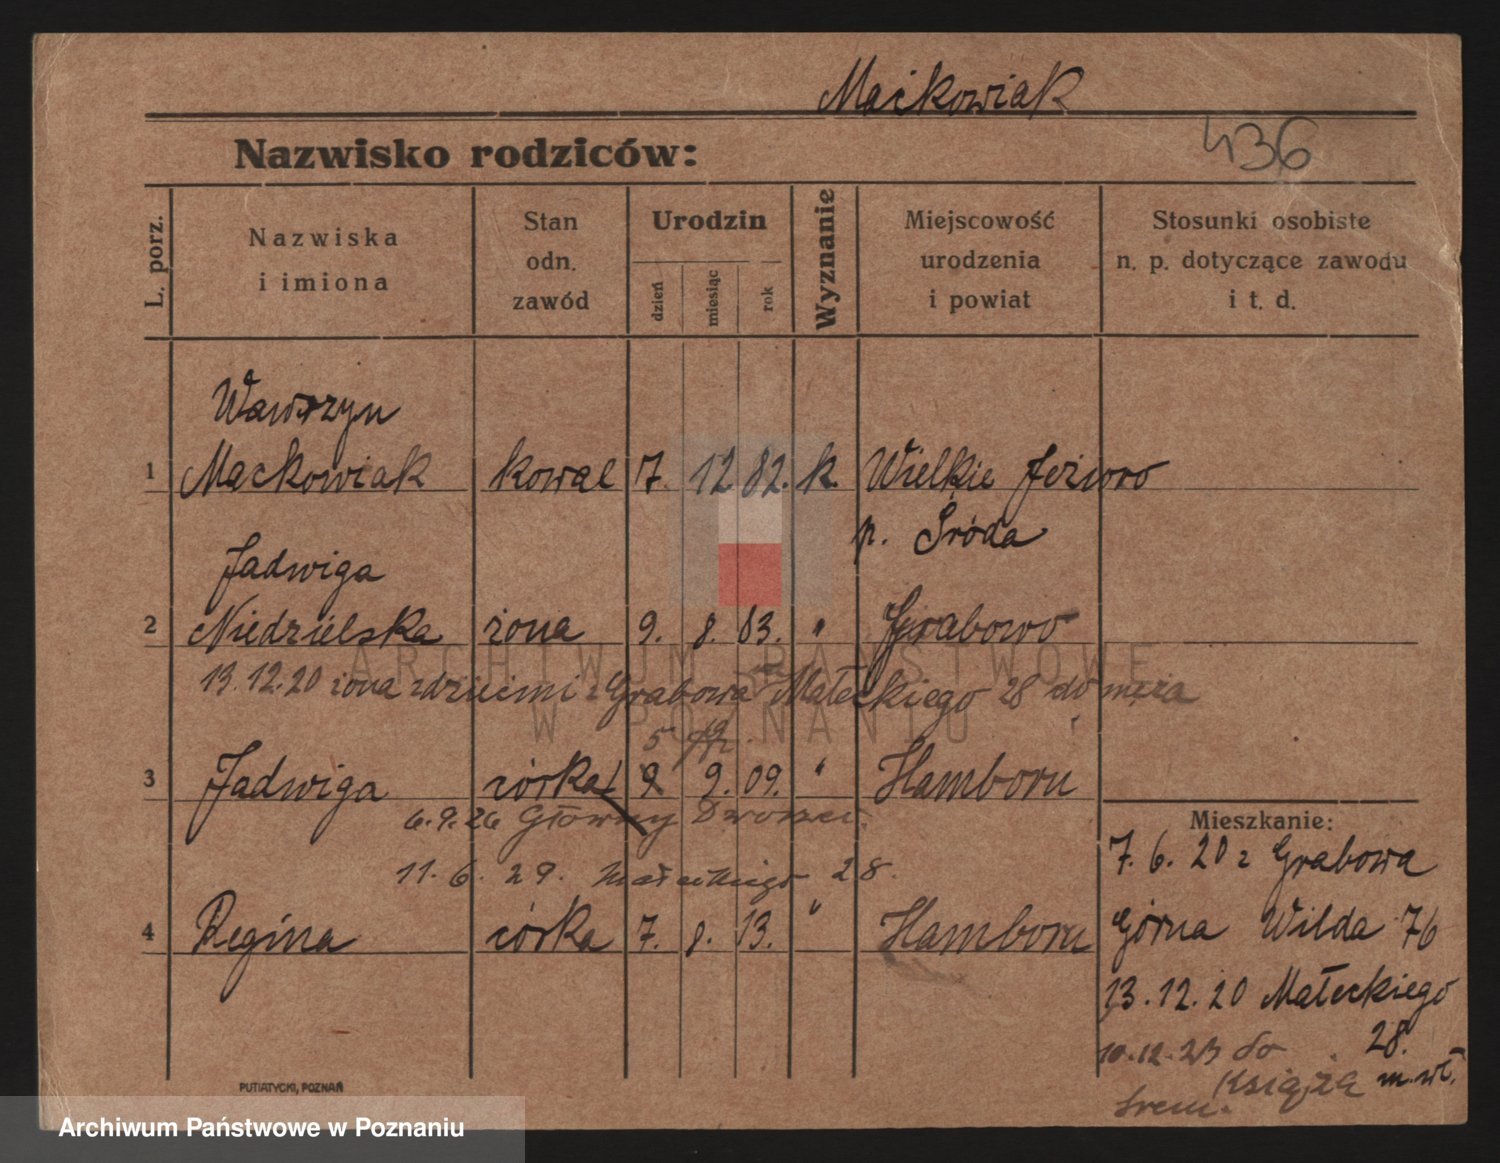 Maćkowiak
436
Nazwisko rodziców:
L. porz.
Nazwiska
i imiona
Stan
odn.
zawód
Urodzin
dzień
miesiąc
rok
Wyznanie
Miejscowość
urodzenia
i powiat
Stosunki osobiste
n. p. dotyczące zawodu
i t. d.
Wawrzyn
1 Maćkowiak kowal 7. 12 82. k. Wielkie Jezioro
p. Środa
Jadwiga
2 Niedzielska żona 9. 8. 83. " Grabowo
13.12.20 żona z dziećmi z Grabowa Małeckiego 28 do męża
5
3 Jadwiga córka 9 9. 09. " Hamborn
6.9.26 Główny Dworzec.
11. 6. 29. Małeckiego 28.
4 Regina córka 7. 8. 13. " Hamborn
Mieszkanie:
7. 6. 20 z Grabowa
Górna Wilda 76
13. 12. 20 Małeckiego
28.
10.12.23 do
Książa m. wł.
Śrem.
PUTIATYCKI, POZNAŃ
ARCHIWUM PAŃSTWOWE
W POZNANIU
Archiwum Państwowe w Poznaniu